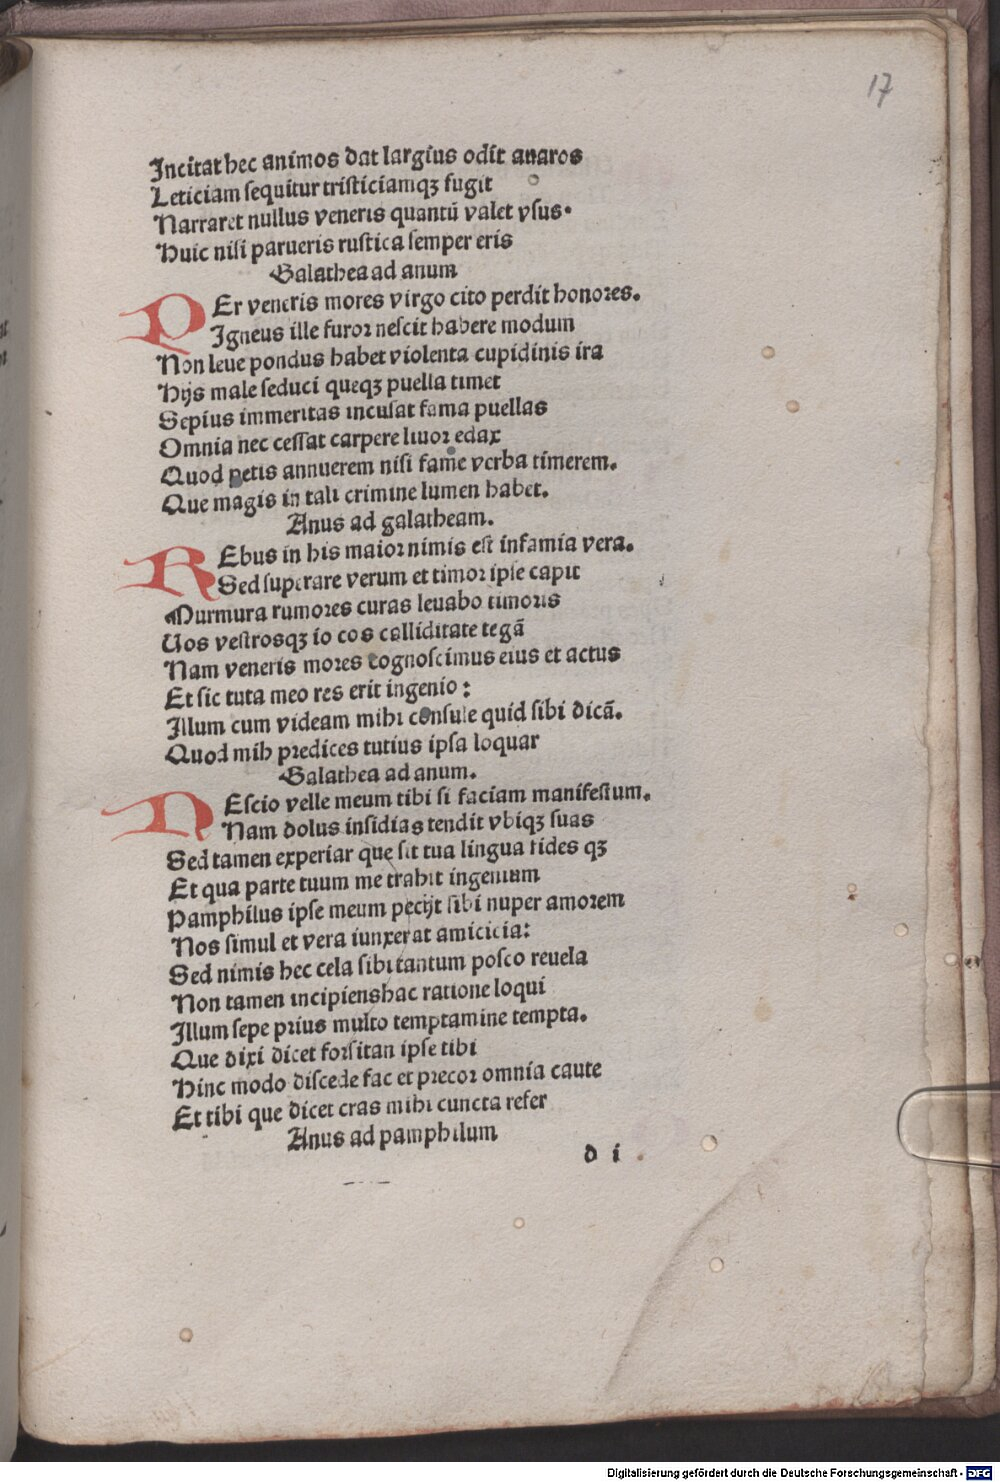 17
Incitat hec animos dat largius odit auaros
Leticiam sequitur tristiciamqꝫ fugit
Narraret nullus veneris quantū valet vsus.
Huic nisi parueris rustica semper eris
Galathea ad anum
PEr veneris mores virgo cito perdit honores.
Igneus ille furor nescit habere modum
Non leue pondus habet violenta cupidinis ira
Hijs male seduci queqꝫ puella timet
Sepius immeritas incusat fama puellas
Omnia nec cessat carpere liuor edax
Quod petis annuerem nisi fame verba timerem.
Que magis in tali crimine lumen habet.
Anus ad galatheam.
REbus in his maior nimis est infamia vera.
Sed superare verum et timor ipse capit
Murmura rumores curas leuabo timoris
Uos vestrosqꝫ io cos calliditate tegā
Nam veneris mores cognoscimus eius et actus
Et sic tuta meo res erit ingenio:
Illum cum videam mihi consule quid sibi dicā.
Quod mih predices tutius ipsa loquar
Galathea ad anum.
NEscio velle meum tibi si faciam manifestum.
Nam dolus insidias tendit vbiqꝫ suas
Sed tamen experiar que sit tua lingua fides qꝫ
Et qua parte tuum me trahit ingenium
Pamphilus ipse meum pecijt sibi nuper amorem
Nos simul et vera iunxerat amicicia:
Sed nimis hec cela sibi tantum posco reuela
Non tamen incipiens hac ratione loqui
Illum sepe prius multo temptamine tempta.
Que dixi dicet forsitan ipse tibi
Hinc modo discede fac et precor omnia caute
Et tibi que dicet cras mihi cuncta refer
Anus ad pamphilum
d i
Digitalisierung gefördert durch die Deutsche Forschungsgemeinschaft - DFG